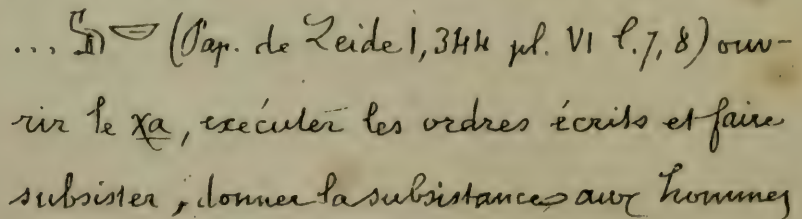 ... (Pap. de Leide 1,344 pl. VI l. 7, 8) ouv-
rir le χa, exécuter les ordres écrits et faire
subsister, donner la subsistance aux hommes